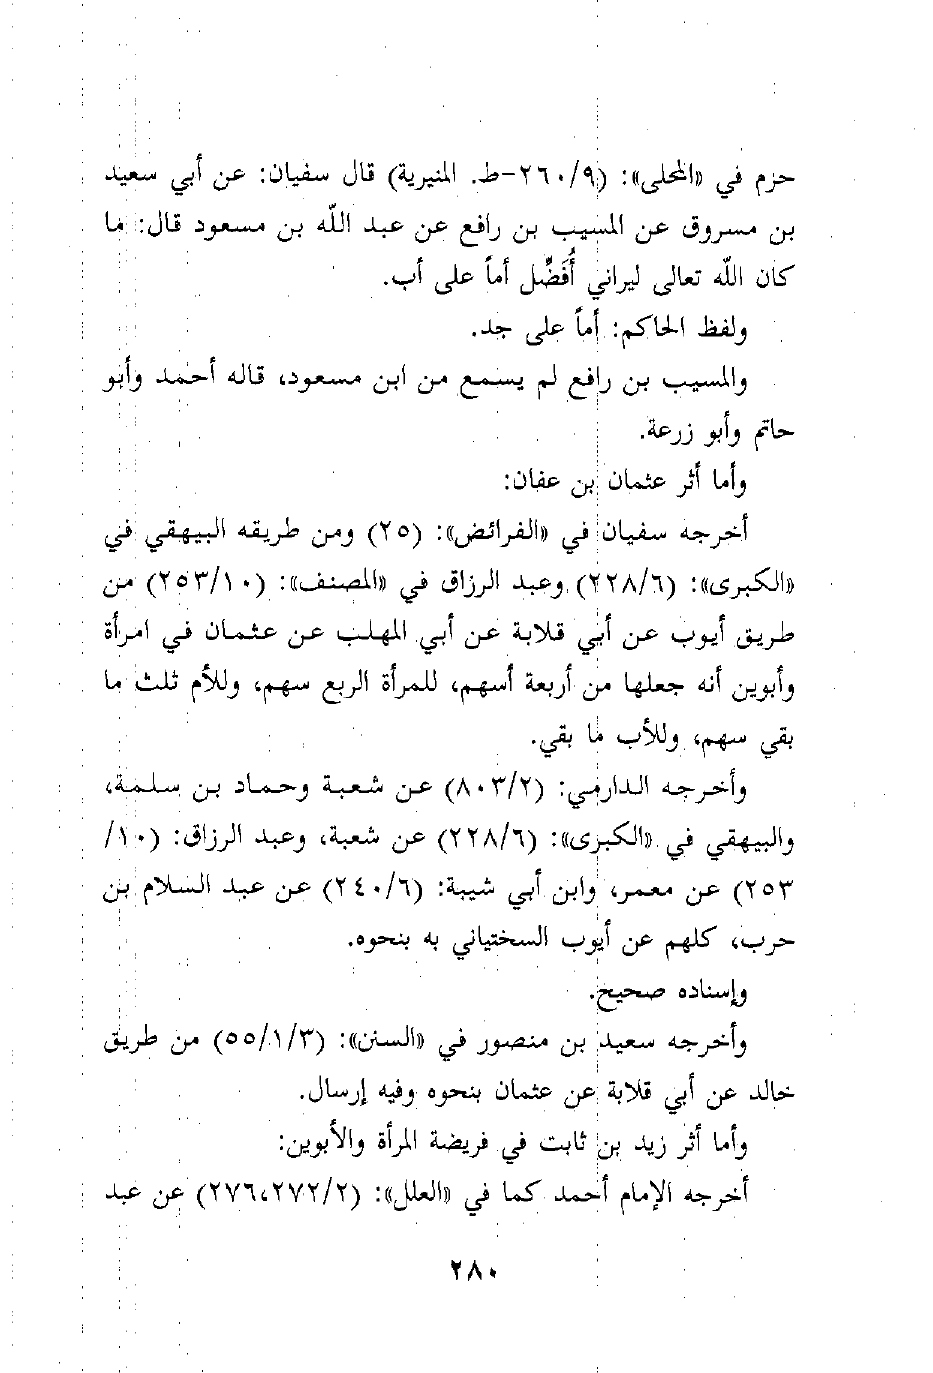 حزم في «المحلى»: (٢٦٠/٩-ط. المنيرية) قال سفيان: عن أبي سعيد
بن مسروق عن المسيب بن رافع عن عبد الله بن مسعود قال: ما
كان الله تعالى ليراني أُفَضِّل أماً على أب.
ولفظ الحاكم: أماً على جد.
والمسيب بن رافع لم يسمع من ابن مسعود، قاله أحمد وأبو
حاتم وأبو زرعة.
وأما أثر عثمان بن عفان:
أخرجه سفيان في «الفرائض»: (٢٥) ومن طريقه البيهقي في
«الكبرى»: (٢٢٨/٦) وعبد الرزاق في «المصنف»: (٢٥٣/١٠) من
طريق أيوب عن أبي قلابة عن أبي المهلب عن عثمان في امرأة
وأبوين أنه جعلها من أربعة أسهم، للمرأة الربع سهم، وللأم ثلث ما
بقي سهم، وللأب ما بقي.
وأخرجه الدارمي: (٨٠٣/٢) عن شعبة وحماد بن سلمة،
والبيهقي في «الكبرى»: (٢٢٨/٦) عن شعبة، وعبد الرزاق: (١٠/
٢٥٣) عن معمر، وابن أبي شيبة: (٢٤٠/٦) عن عبد السلام بن
حرب، كلهم عن أيوب السختياني به بنحوه.
وإسناده صحيح.
وأخرجه سعيد بن منصور في «السنن»: (٥٥/١/٣) من طريق
خالد عن أبي قلابة عن عثمان بنحوه وفيه إرسال.
وأما أثر زيد بن ثابت في فريضة المرأة والأبوين:
أخرجه الإمام أحمد كما في «العلل»: (٢٧٦،٢٧٢/٢) عن عبد
٢٨٠